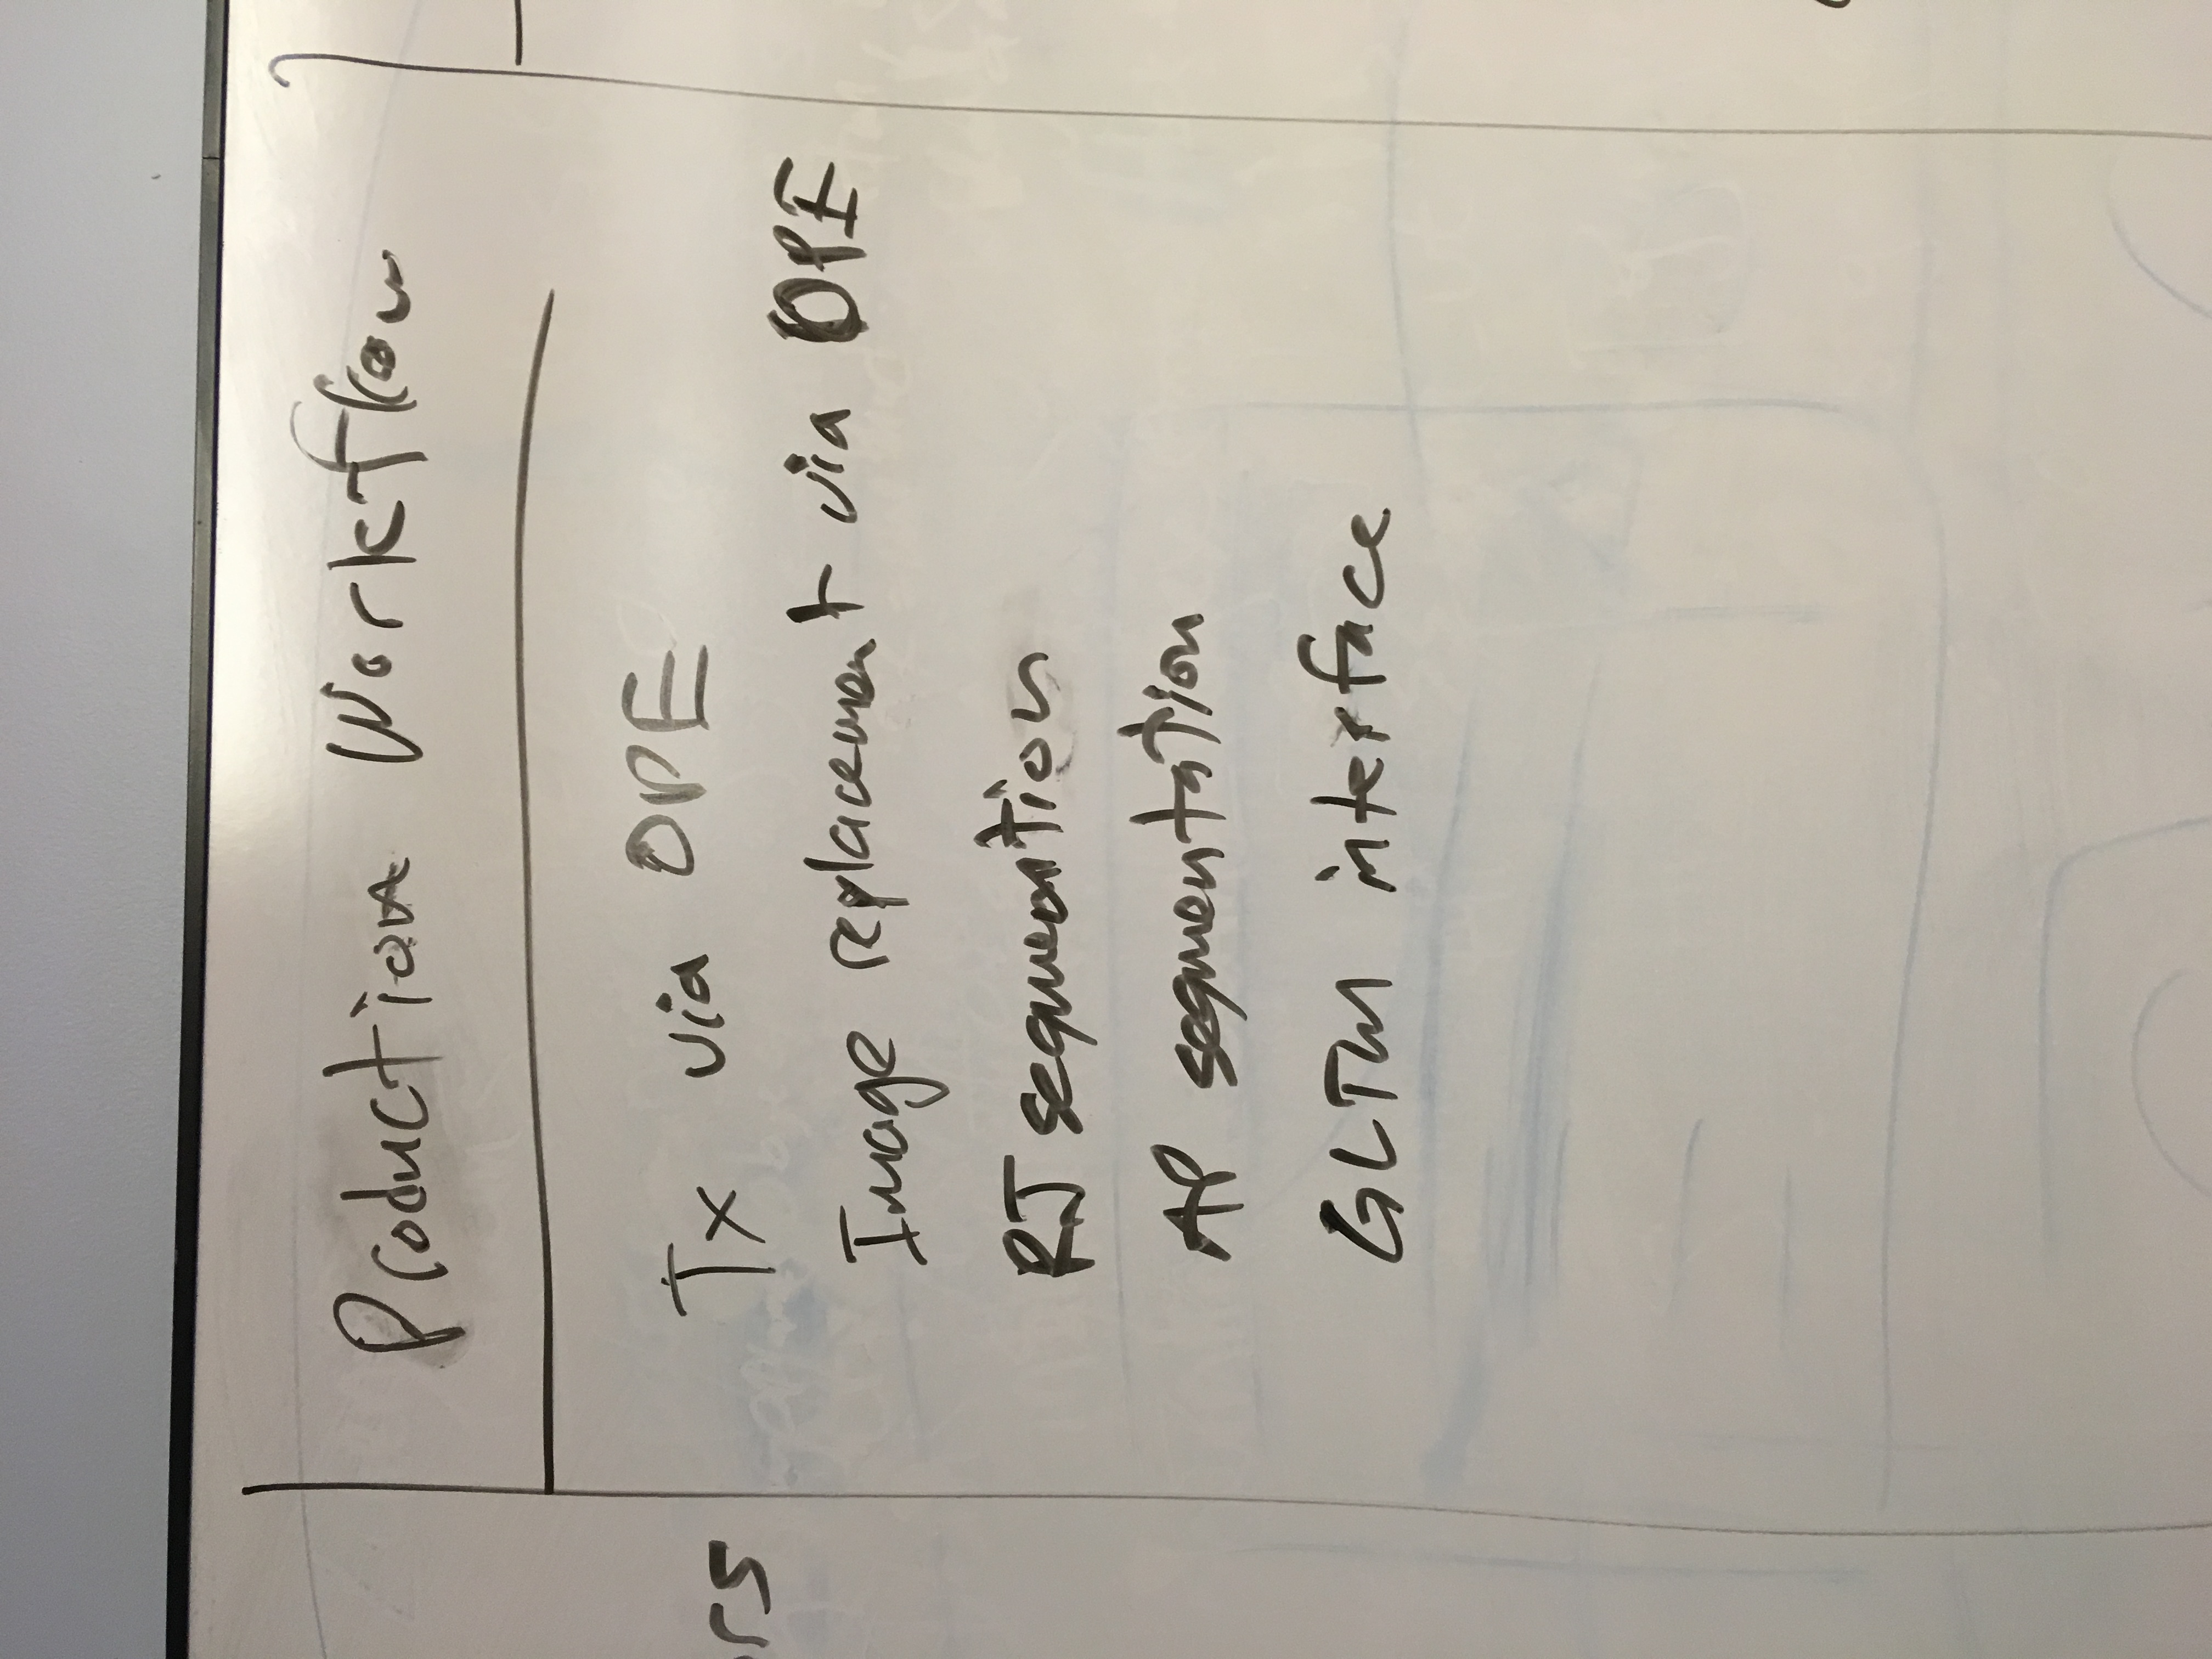 Production Workflow
Tx via OPE
Image replacement via OPE
RJ segmention
AP segmentation
GLTM interface
rs